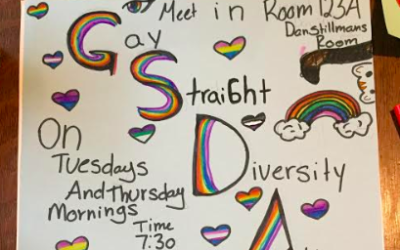 Meet in Room 123A
Dan Stillmans
Room
Gay
Straight
On
Tuesdays
Diversity
And Thursday
Mornings
Time
7:30
A